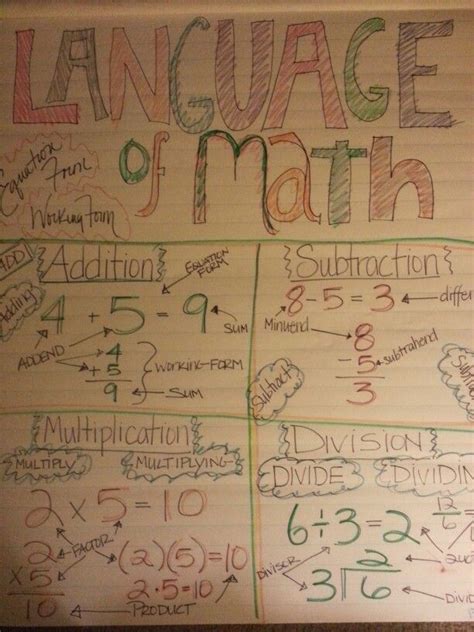 LANGUAGE
of Math
Equation
Form
Working Form
ADD
Adding
Addition
EQUATION
FORM
4 + 5 = 9
SUM
ADDEND
4
+ 5
9
Working-FORM
SUM
Subtraction
8-5=3
differ
Minuend
8
- 5
3
subtrahend
Subtract
Subt
Multiplication
MULTIPLY
MULTIPLYING
2 x 5 = 10
FACTOR
2
x 5
10
(2)(5)=10
2·5=10
PRODUCT
Division
DIVIDE
DIVIDIN
6÷3=2
12/6
DIVISER
2
3⟌6
Divid